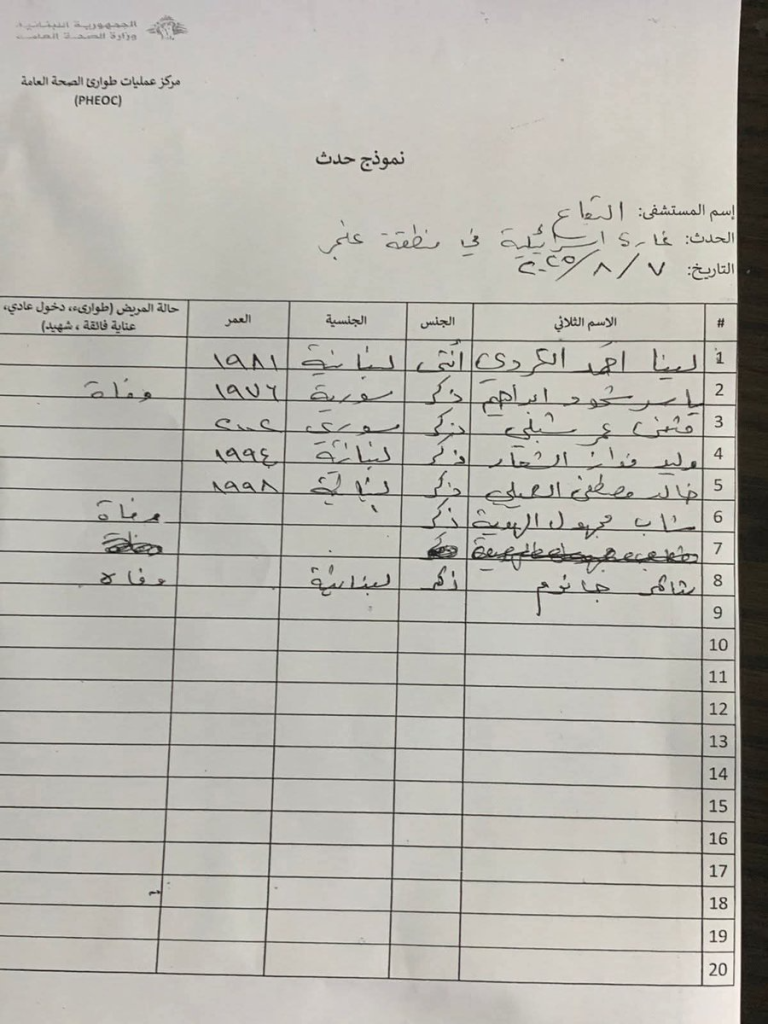 الجمهورية اللبنانية
وزارة الصحة العامة
مركز عمليات طوارئ الصحة العامة
(PHEOC)
نموذج حدث
إسم المستشفى: البقاع
الحدث: غارة اسرائيلية في منطقة عنجر
التاريخ: ٧ / ٨ / ٢٠٢٥
# الاسم الثلاثي الجنس الجنسية العمر حالة المريض (طوارىء، دخول عادي، عناية فائقة ، شهيد)
1 لينا احمد الكردي أنثى لبنانية ١٩٨١
2 ياسر شحود ابراهيم ذكر سورية ١٩٧٦ وفاة
3 عمر شبلي ذكر سوري ٢٠٠٢
4 وليد فواز الشعار ذكر لبنانية ١٩٩٤
5 خالد مصطفى ذكر ١٩٩٨
6 شاب مجهول الهوية ذكر وفاة
7
8 شاكر جانوم ذكر لبنانية وفاه
9
10
11
12
13
14
15
16
17
18
19
20